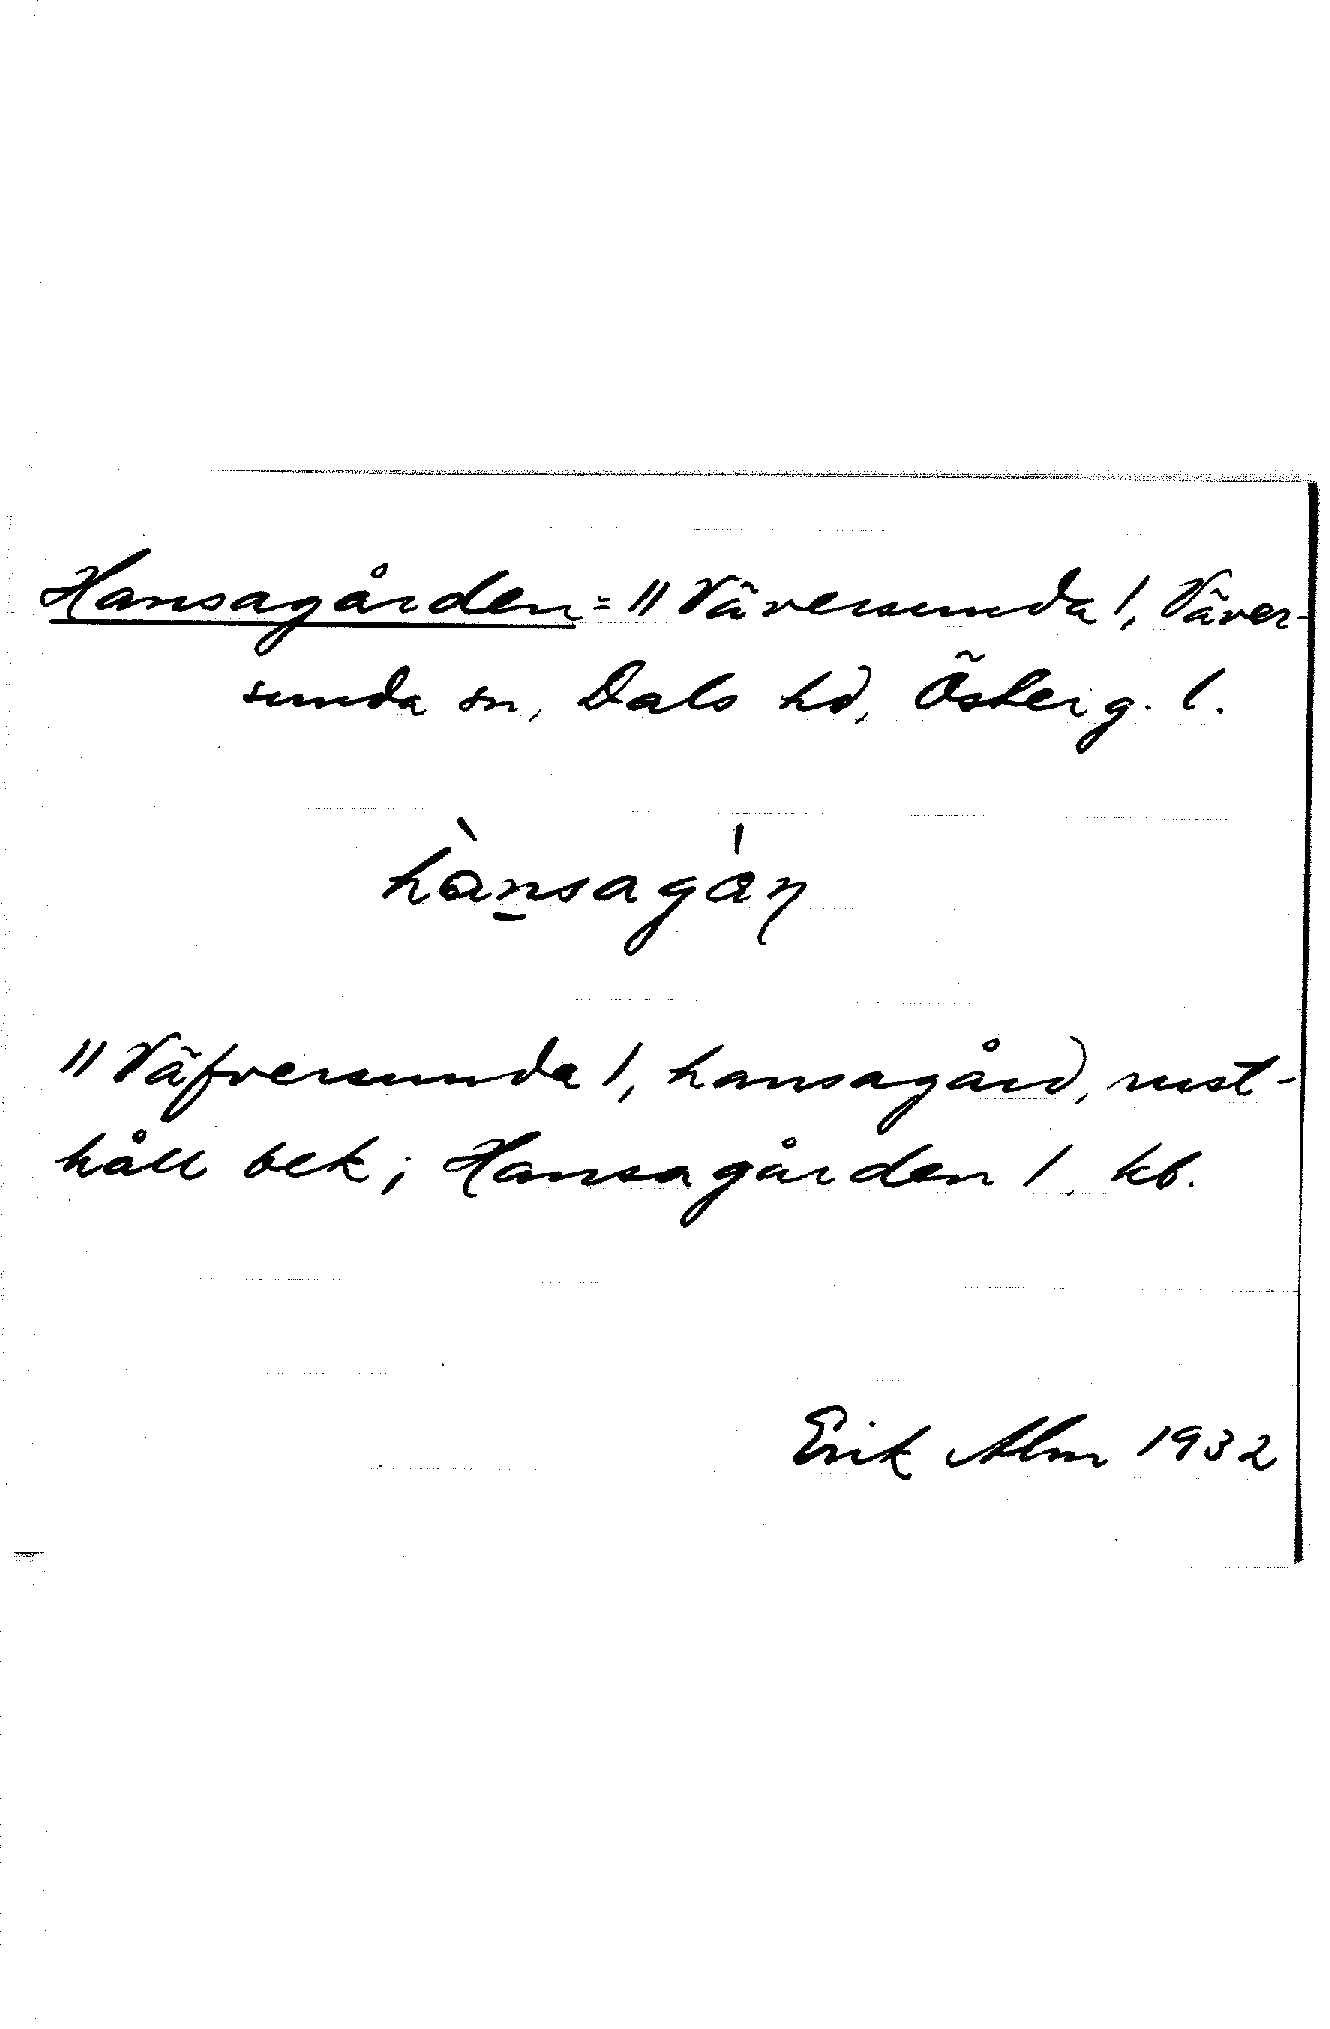 Hansagården = 11 Väversunda 1, Väver-
sunda sn, Dals hd, Österg. l.
hàn̲sagán
11 Väfversunda 1, hansagård, rust-
håll bek; Hansagården 1 kb.
Erik Alm 1932